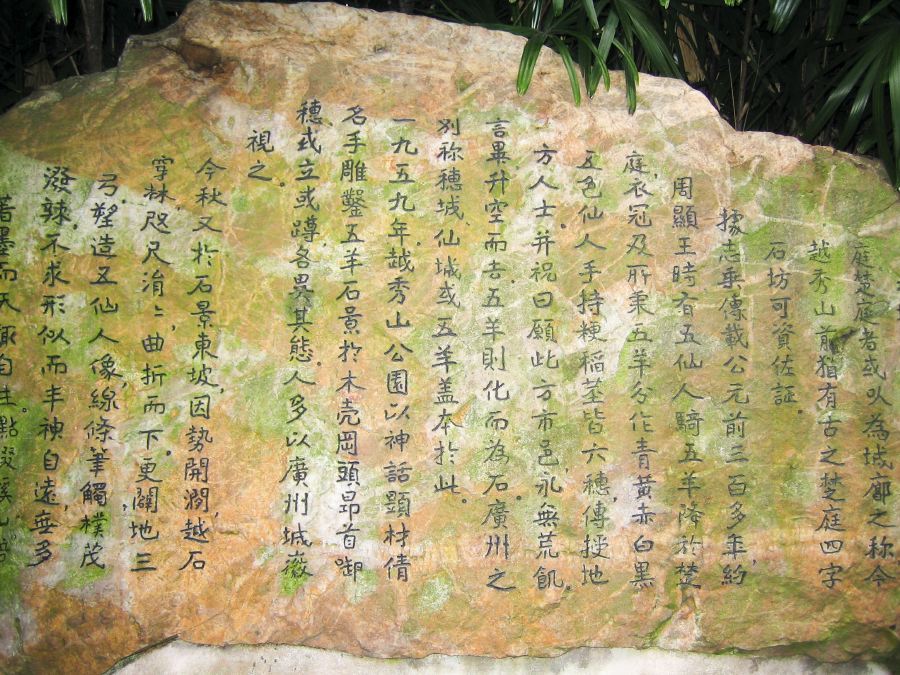 庭楚庭者或以為城廓之称今
越秀山前猶有古之楚庭四字
石坊可資佐証。
據志乘傳載公元前三百多年約
周顯王時有五仙人騎五羊降於楚
庭，衣冠及所秉五羊分作青黃赤白黑
五色仙人手持粳稻莖皆六穗，傳授地
方人士，并祝曰願此方市邑，永無荒飢。
言畢升空而去，五羊則化而為石。廣州之
別称穗城、仙城或五羊盖本於此。
一九五九年，越秀山公園以神話題材倩
名手雕鑿五羊石景於木壳岡頭昂首啣
穗，或立或蹲，各異其態。人多以廣州城徽
視之。
今秋又於石景東坡，因勢開澗，越石
穿林，咫尺涓涓，曲折而下。更闢地三
弓，塑造五仙人像，線條筆觸樸茂
潑辣，不求形似而丰神自遠，無多
著墨而天趣自